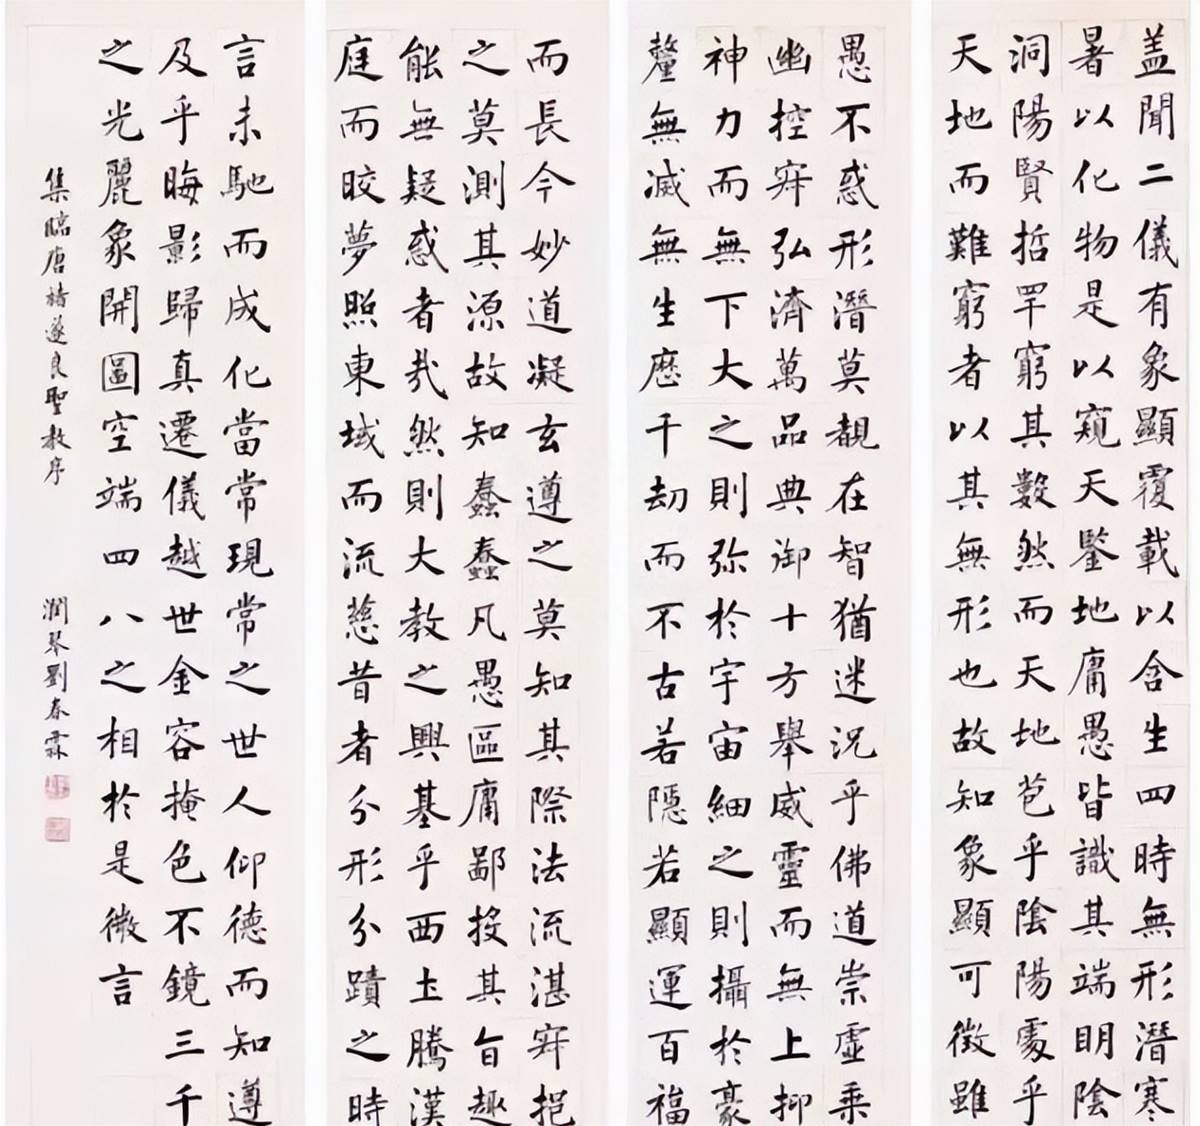 盖聞二儀有象顯覆載以含生四時無形潛寒
暑以化物是以窺天鑒地庸愚皆識其端明陰
洞陽賢哲罕窮其數然而天地苞乎陰陽處乎
天地而難窮者以其無形也故知象顯可徵雖
愚不惑形潛莫覩在智猶迷況乎佛道崇虛乗
幽控寂弘濟萬品典御十方舉威靈而無上抑
神力而無下大之則弥於宇宙細之則攝於豪
釐無滅無生歷千劫而不古若隱若顯運百福
而長今妙道凝玄遵之莫知其際法流湛寂挹
之莫測其源故知蠢蠢凡愚區庸鄙投其旨趣
能無疑惑者哉然則大教之興基乎西土騰漢
庭而皎夢照東域而流慈昔者分形分蹟之時
言未馳而成化當常現常之世人仰德而知遵
及乎晦影歸真遷儀越世金容掩色不鏡三千
之光麗象開圖空端四八之相於是微言
集臨唐褚遂良聖教序 潤琴劉春霖